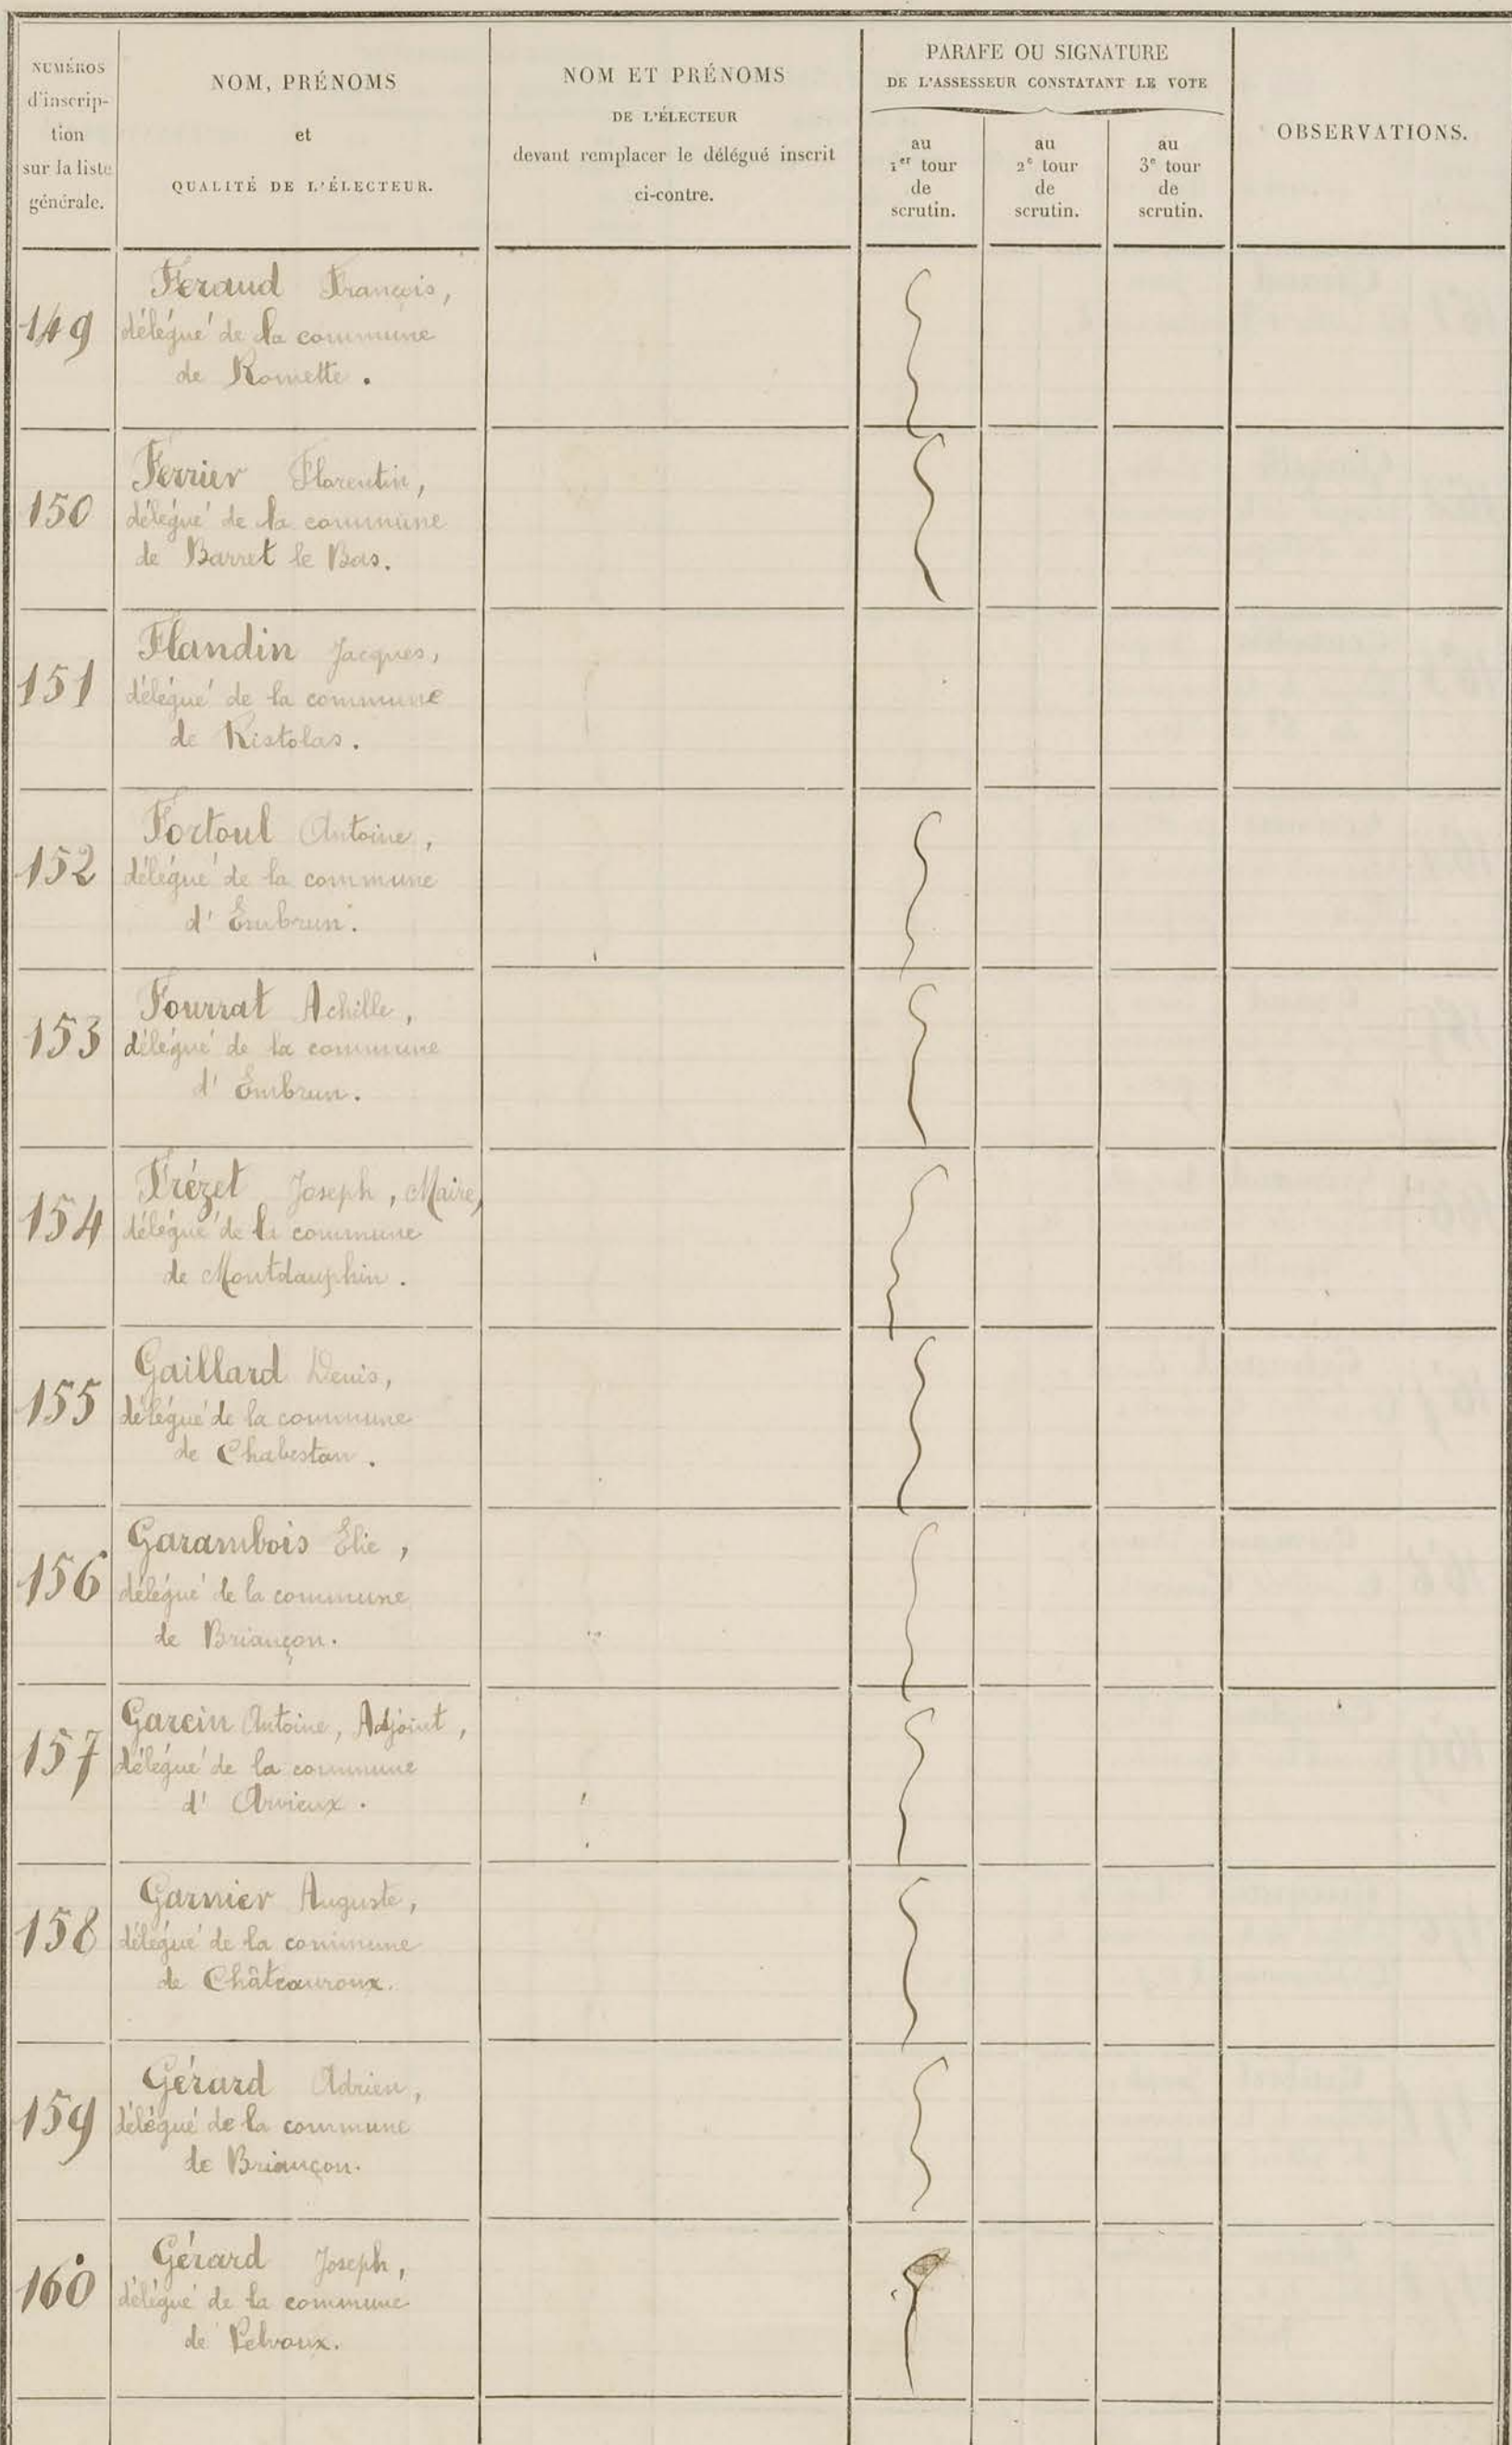 NUMÉROS
d'inscrip-
tion
sur la liste
générale.
NOM, PRÉNOMS
et
QUALITÉ DE L'ÉLECTEUR.
NOM ET PRÉNOMS
DE L'ÉLECTEUR
devant remplacer le délégué inscrit
ci-contre.
PARAFE OU SIGNATURE
DE L'ASSESSEUR CONSTATANT LE VOTE
au
1er tour
de
scrutin.
au
2e tour
de
scrutin.
au
3e tour
de
scrutin.
OBSERVATIONS.
149
Feraud François,
délégué de la commune
de Romette.
150
Ferrier Florentin,
délégué de la commune
de Barret le Bas.
151
Flandin Jacques,
délégué de la commune
de Ristolas.
152
Fortoul Antoine,
délégué de la commune
d'Embrun.
153
Fourrat Achille,
délégué de la commune
d'Embrun.
154
Frézet Joseph, Maire,
délégué de la commune
de Montdauphin.
155
Gaillard Denis,
délégué de la commune
de Chabestan.
156
Garambois Élie,
délégué de la commune
de Briançon.
157
Garcin Antoine, Adjoint,
délégué de la commune
d'Arvieux.
158
Garnier Auguste,
délégué de la commune
de Châteauroux.
159
Gérard Adrien,
délégué de la commune
de Briançon.
160
Gérard Joseph,
délégué de la commune
de Pelvoux.